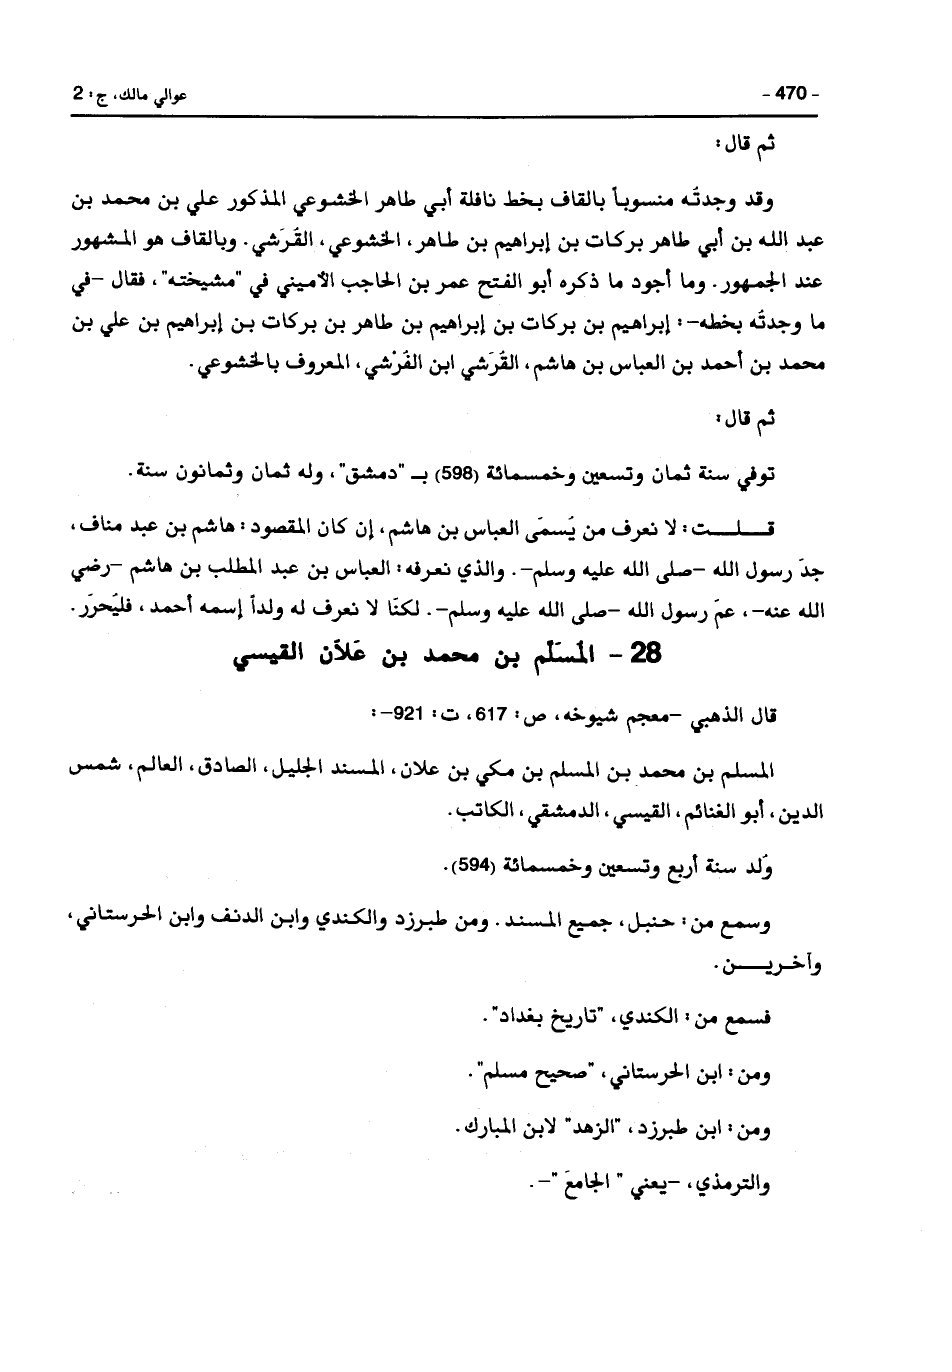 - 470 -
عوالي مالك، ج: 2
ثم قال:
وقد وجدتُه منسوباً بالقاف بخط نافلة أبي طاهر الخشوعي المذكور علي بن محمد بن
عبد الله بن أبي طاهر بركات بن إبراهيم بن طاهر، الخشوعي، القَرَشي. وبالقاف هو المشهور
عند الجمهور. وما أجود ما ذكره أبو الفتح عمر بن الحاجب الأميني في "مشيخته"، فقال –في
ما وجدتُه بخطه–: إبراهيم بن بركات بن إبراهيم بن طاهر بن بركات بن إبراهيم بن علي بن
محمد بن أحمد بن العباس بن هاشم، القُرَشي ابن الفَرْشي، المعروف بالخشوعي.
ثم قال:
توفي سنة ثمان وتسعين وخمسمائة (598) بـ "دمشق"، وله ثمان وثمانون سنة.
قـلـت: لا نعرف من يُسمَى العباس بن هاشم، إن كان المقصود: هاشم بن عبد مناف،
جدَ رسول الله –صلى الله عليه وسلم–. والذي نعرفه: العباس بن عبد المطلب بن هاشم –رضي
الله عنه–، عمَ رسول الله –صلى الله عليه وسلم–. لكنَا لا نعرف له ولداً إسمه أحمد، فليُحرَر.
28 - المُسَلَم بن محمد بن عَلاَن القيسي
قال الذهبي –معجم شيوخه، ص: 617، ت: 921–:
المسلم بن محمد بن المسلم بن مكي بن علان، المسند الجليل، الصادق، العالم، شمس
الدين، أبو الغنائم، القيسي، الدمشقي، الكاتب.
وُلد سنة أربع وتسعين وخمسمائة (594).
وسمع من: حنبل، جميع المسند. ومن طبرزد والكندي وابن الدنف وابن الحرستاني،
وآخريـن.
فسمع من: الكندي، "تاريخ بغداد".
ومن: ابن الحرستاني، "صحيح مسلم".
ومن: ابن طبرزد، "الزهد" لابن المبارك.
والترمذي، –يعني "الجامعَ"–.